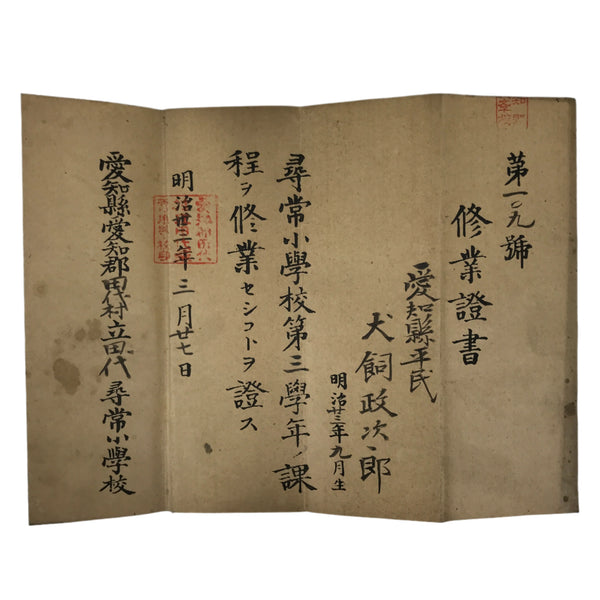 第一〇九號
修業證書
愛知縣平民
犬飼政次郎
明治廿三年九月生
尋常小學校第三學年ノ課
程ヲ修業セシコトヲ證ス
明治卅二年三月廿七日
愛知縣愛知郡田代村立田代尋常小學校